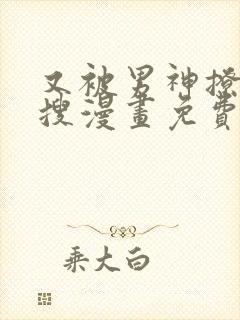 又被男神撩
搜漫畫免費
乘大白